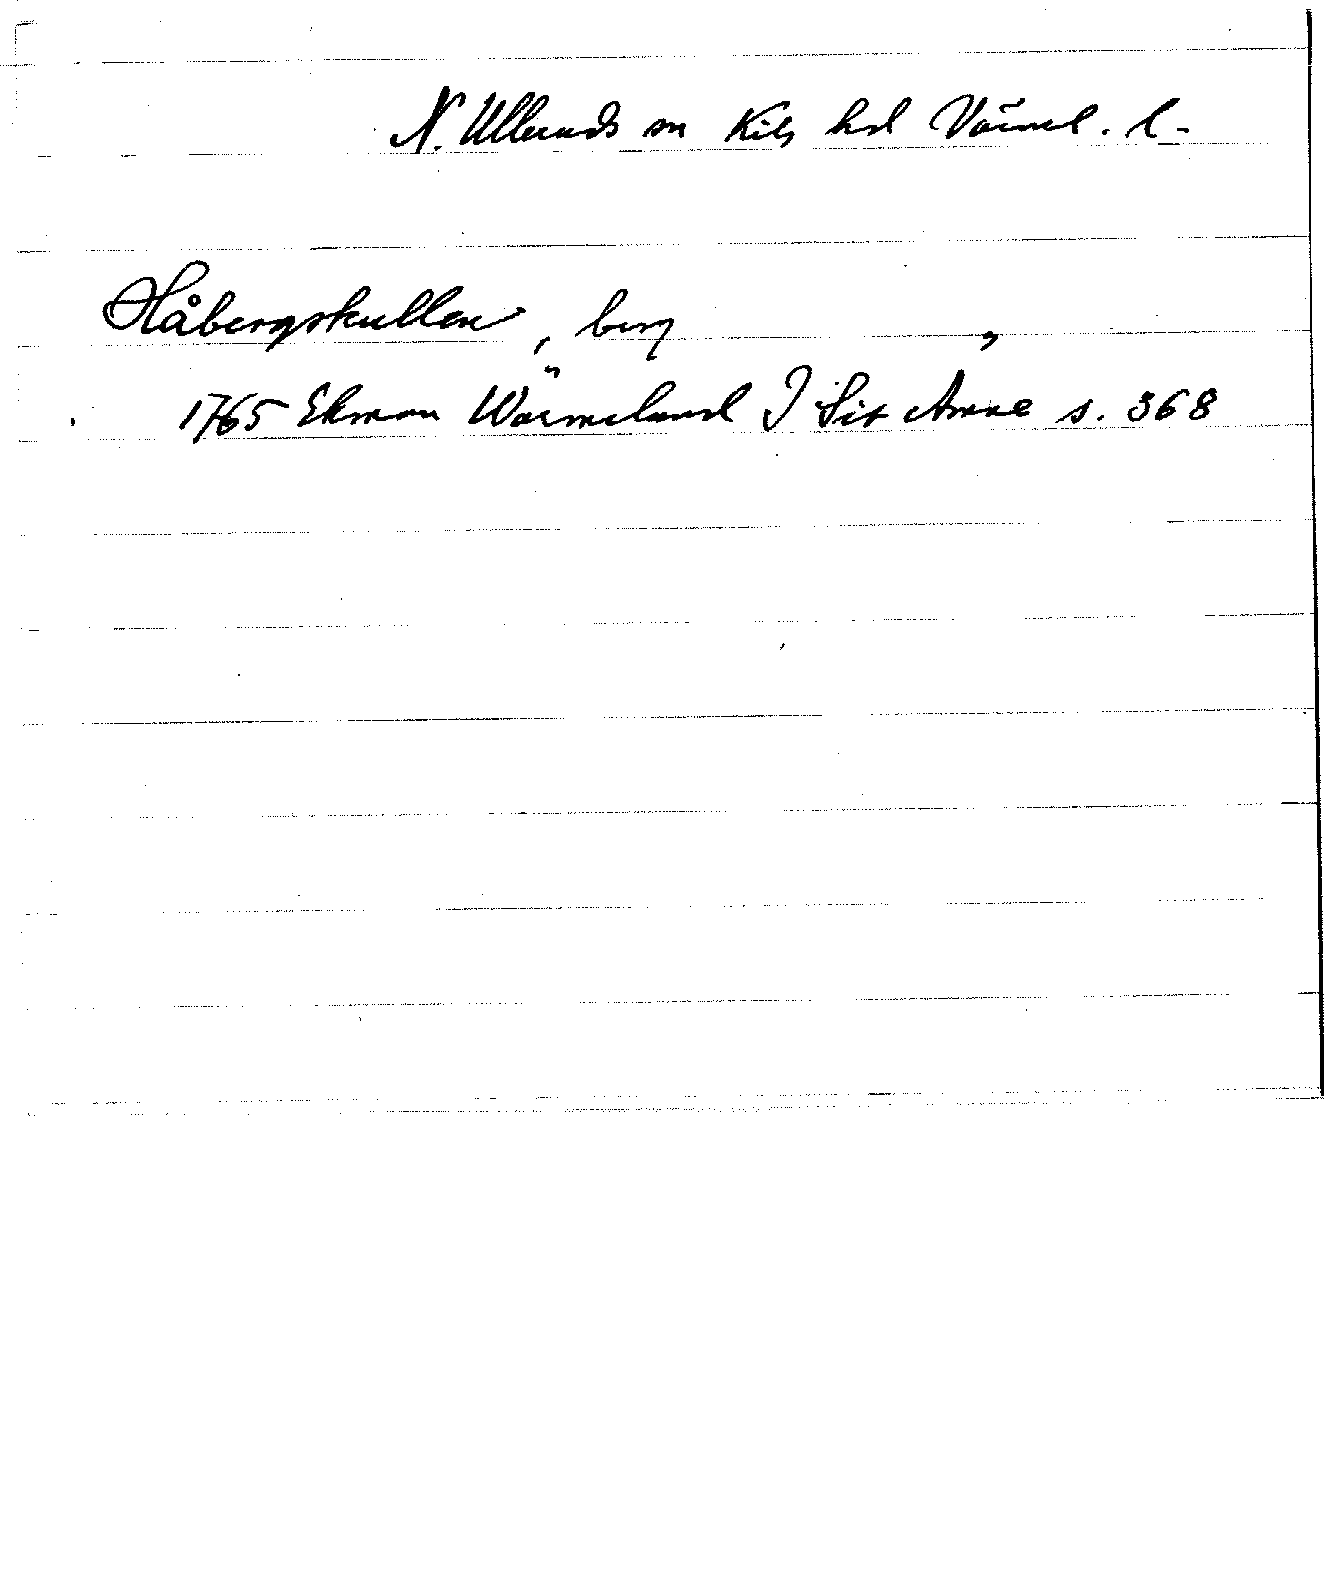 N. Ulleruds sn Kils hd Värml. l.
Håbergskullen, berg
1765 Ekman Wärmeland I s. 368